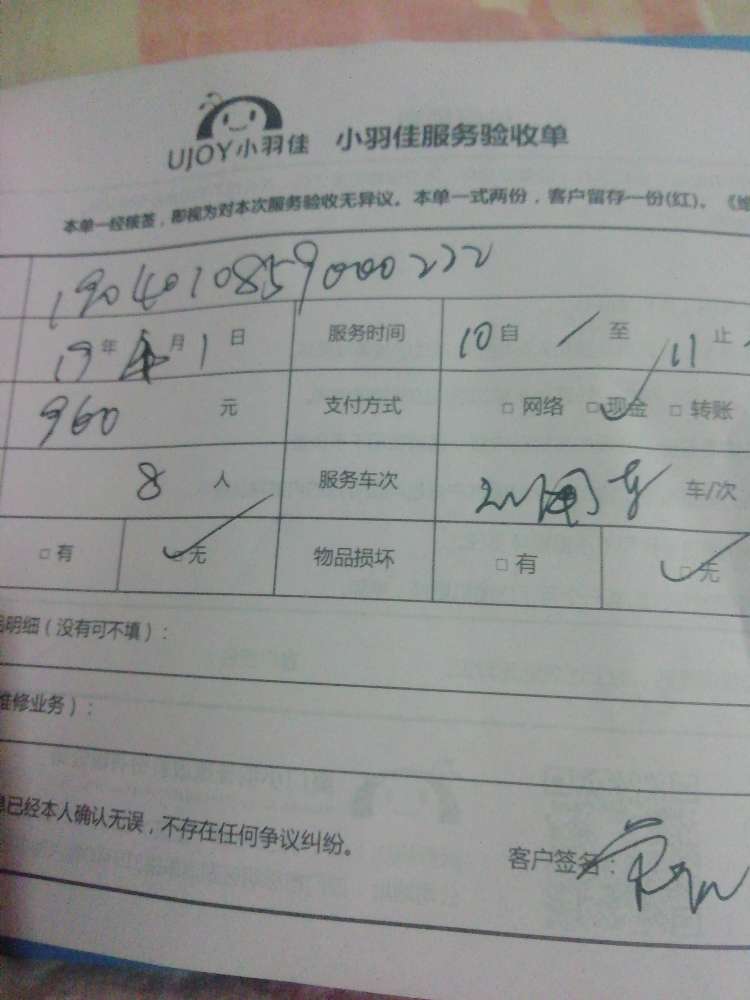 UJOY小羽佳 小羽佳服务验收单
本单一经核签，即视为对本次服务验收无异议。本单一式两份，客户留存一份(红)。《维
1904010859000222
19年4月1日 服务时间 10自 / 至 11止
960元 支付方式 □网络 ☑现金 □转账
8人 服务车次 车/次
□有 ☑无 物品损坏 □有 ☑无
品明细（没有可不填）：
维修业务）：
单已经本人确认无误，不存在任何争议纠纷。
客户签名：